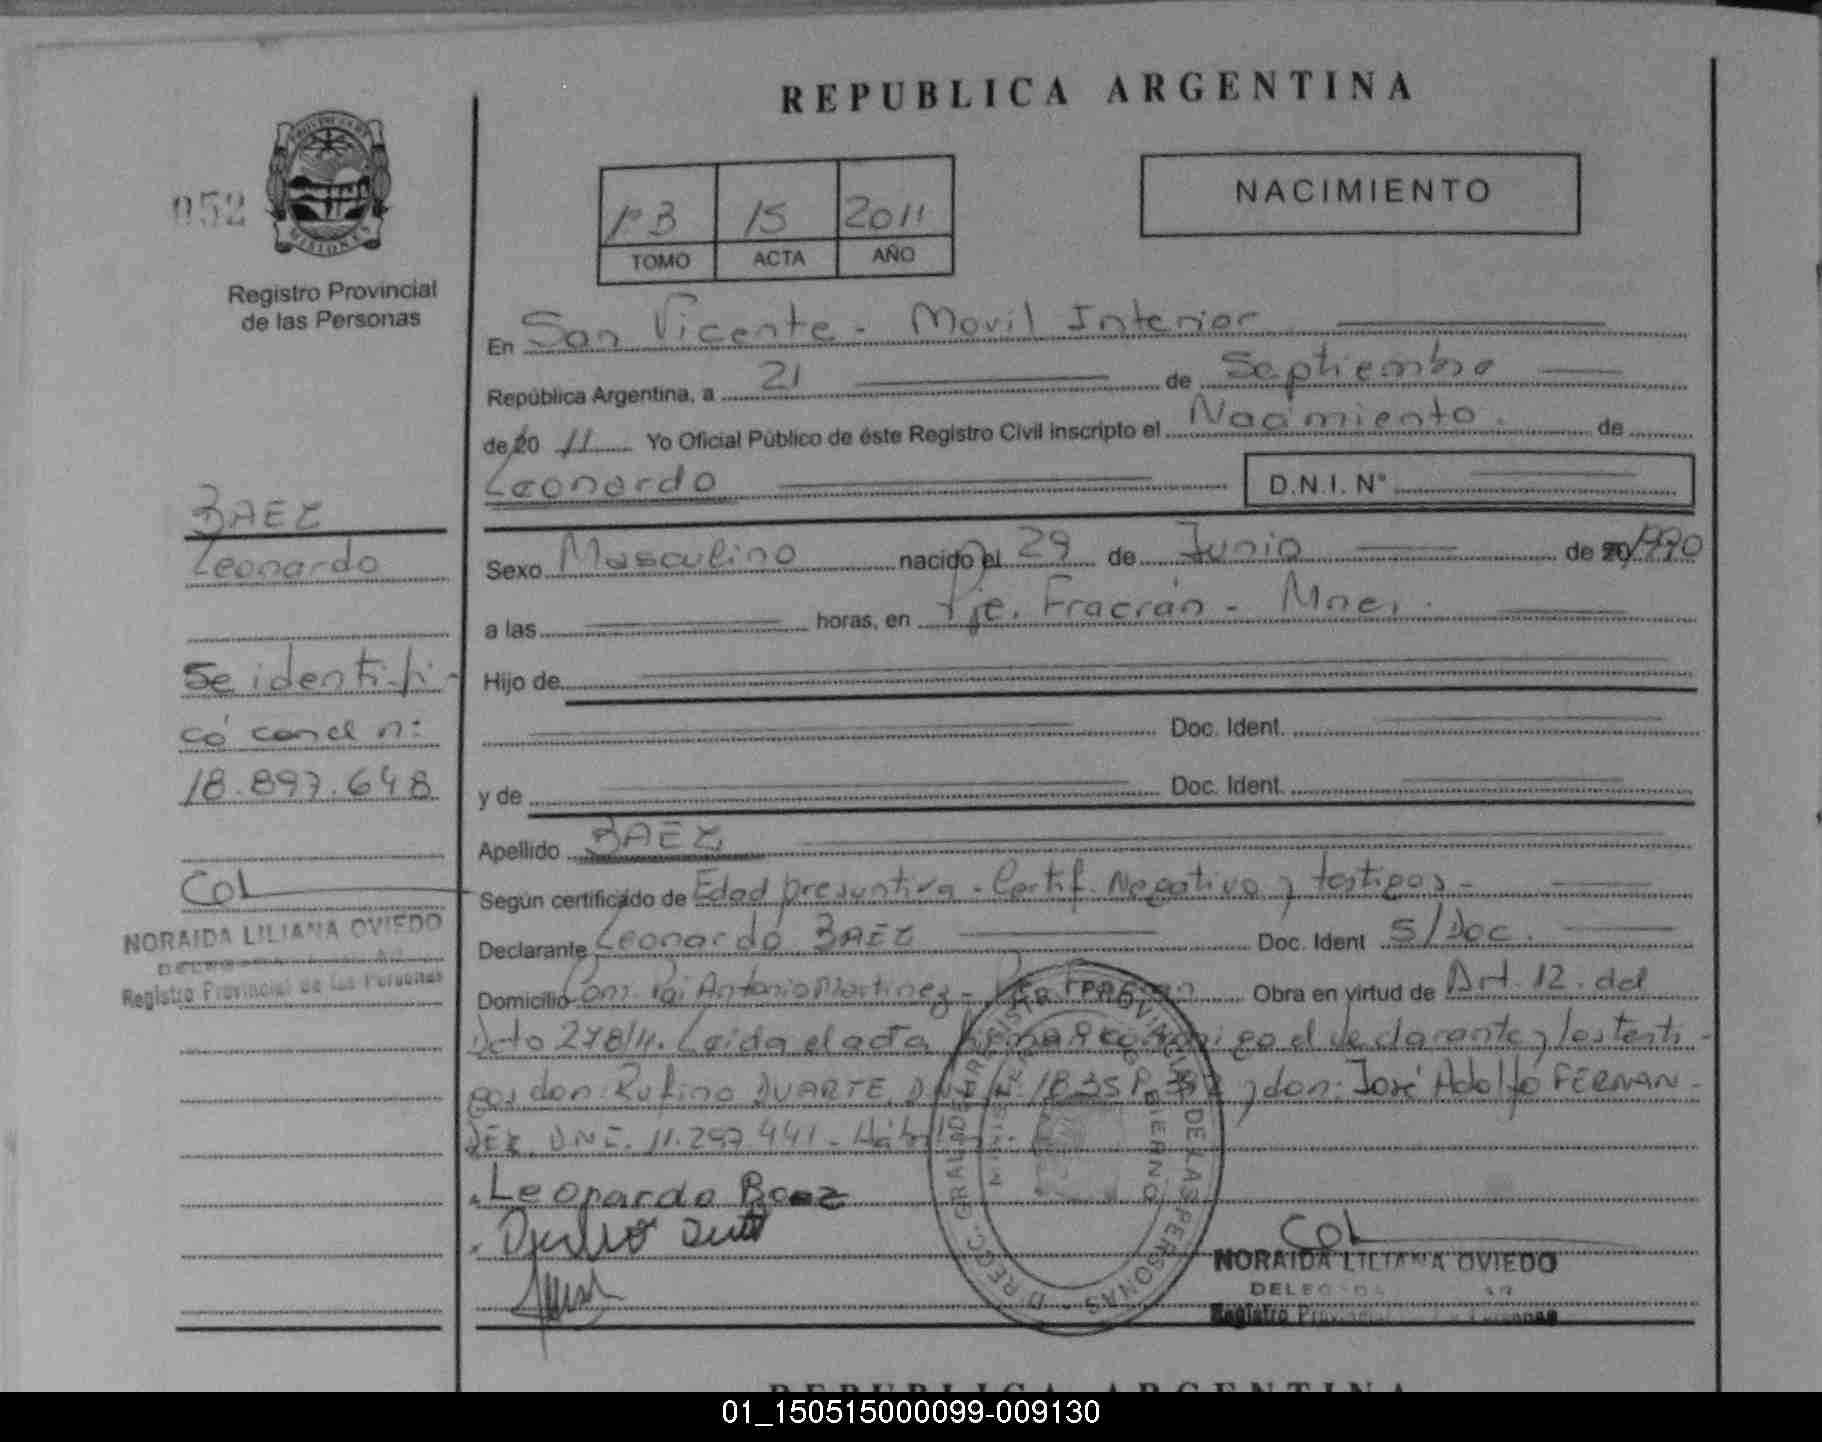 REPUBLICA ARGENTINA
052
PROVINCIA DE
MISIONES
Registro Provincial
de las Personas
1º B 15 2011
TOMO ACTA AÑO
NACIMIENTO
En San Vicente - Movil Interior
República Argentina, a 21 de Septiembre
de 20 11 Yo Oficial Público de éste Registro Civil inscripto el Nacimiento. de
Leonardo D.N.I. Nº
Sexo Masculino nacido el 29 de Junio de 1990
a las horas, en Pje. Fracrán - Mnes.
Hijo de
Doc. Ident.
y de Doc. Ident.
Apellido BAEZ
Según certificado de Edad presuntiva - Certif. Negativo y testigos -
Declarante Leonardo BAEZ Doc. Ident S/Doc.
Domicilio Com. Pai Antonio Martinez - Obra en virtud de Art. 12. del
Dcto 278/11. Leida el acta conmigo el declarante y los testi-
gos don: Rufino DUARTE, y don: José Adolfo FERNAN-
DEZ, DNI. 11.297.441 -
Leonardo Baez
COL
NORAIDA LILIANA OVIEDO
Registro
BAEZ
Leonardo
Se identifi-
có con el n:
18.897.648
COL
NORAIDA LILIANA OVIEDO
Registro Provincial de las Personas
REPUBLICA ARGENTINA
01_150515000099-009130